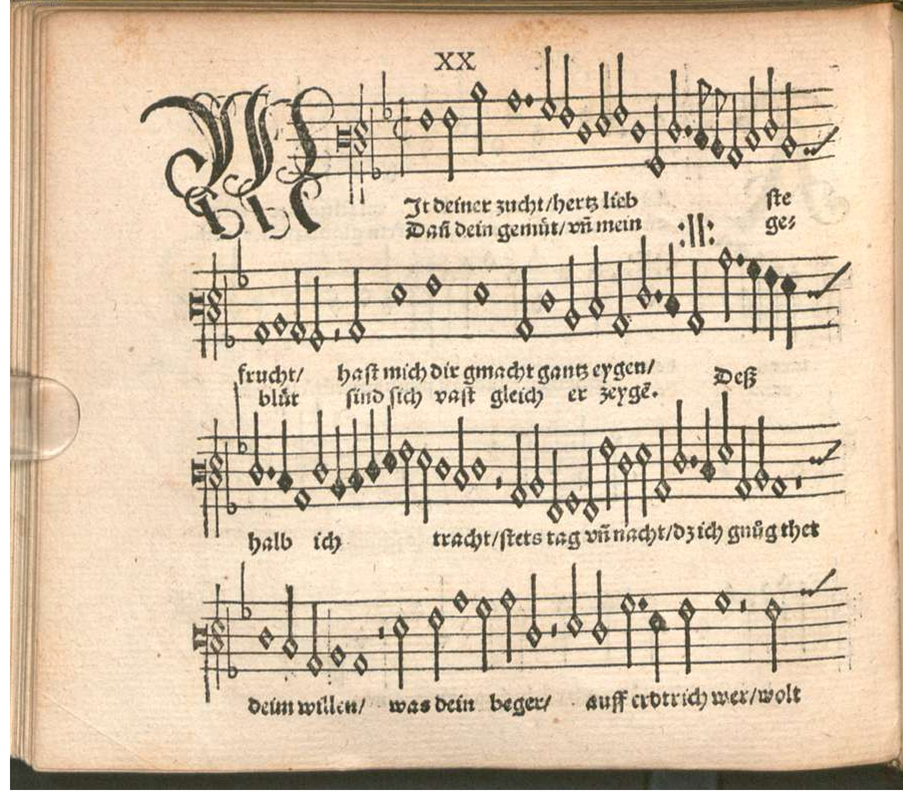 XX
MIt deiner zucht/hertz lieb ste
Dañ dein gemüt/vñ mein ge⸗
frucht/ hast mich dir gmacht gantz eygen/ Deß
blüt sind sich vast gleich er zeygẽ.
halb ich tracht/stets tag vñ nacht/dz ich gnůg thet
deim willen/ was dein beger/ auff erdtrich wer/wolt